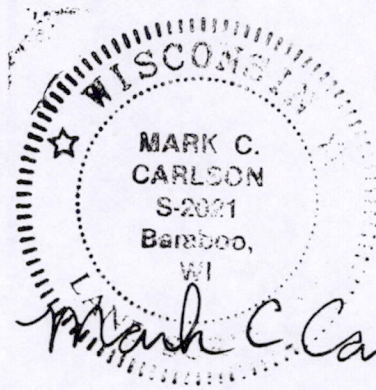 WISCONSIN
MARK C.
CARLSON
S-2021
Baraboo,
WI
Mark C. Ca